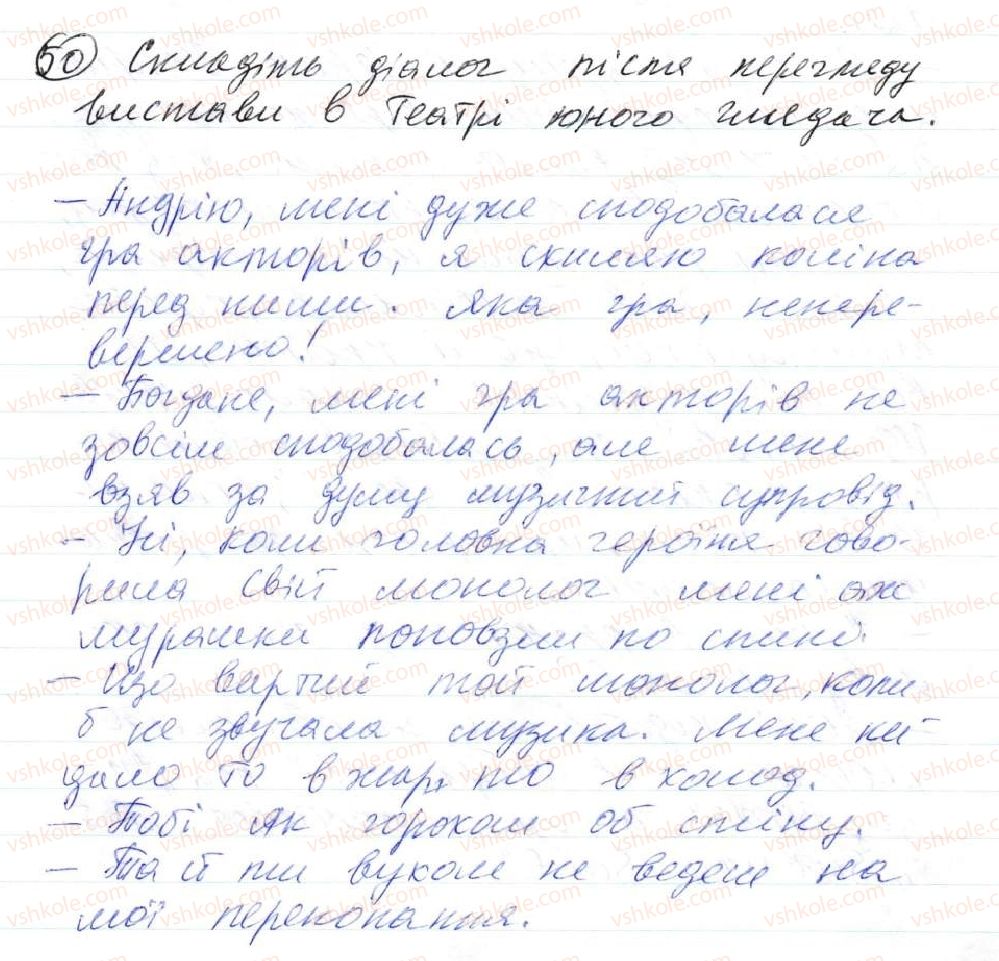 50 Складіть діалог після перегляду
вистави в Театрі юного глядача.
– Андрію, мені дуже сподобалася
гра акторів, я схиляю коліна
перед ними. Яка гра, непере-
вершено!
– Богдане, мені гра акторів не
зовсім сподобалась, але мене
взяв за душу музичний супровід.
– Ні, коли головна героїня гово-
рила свій монолог мені аж
мурашки поповзли по спині.
– Що вартий той монолог, коли
б не звучала музика. Мене ки
дало то в жар, то в холод.
– Тобі як горохом об стіну.
– Та й ти вухом не ведеш на
мої переконання.